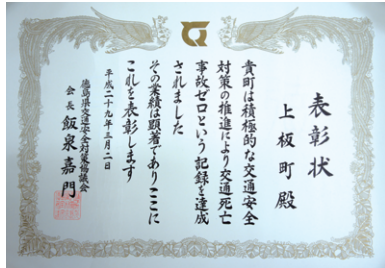 表彰状
上板町殿
貴町は積極的な交通安全
対策の推進により交通死亡
事故ゼロという記録を達成
されました
その業績は顕著でありここに
これを表彰します
平成二十九年三月二日
徳島県交通安全対策協議会
会長 飯泉嘉門